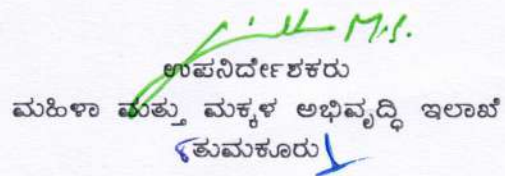 M.S.
ಉಪನಿರ್ದೇಶಕರು
ಮಹಿಳಾ ಮತ್ತು ಮಕ್ಕಳ ಅಭಿವೃದ್ಧಿ ಇಲಾಖೆ
ತುಮಕೂರು